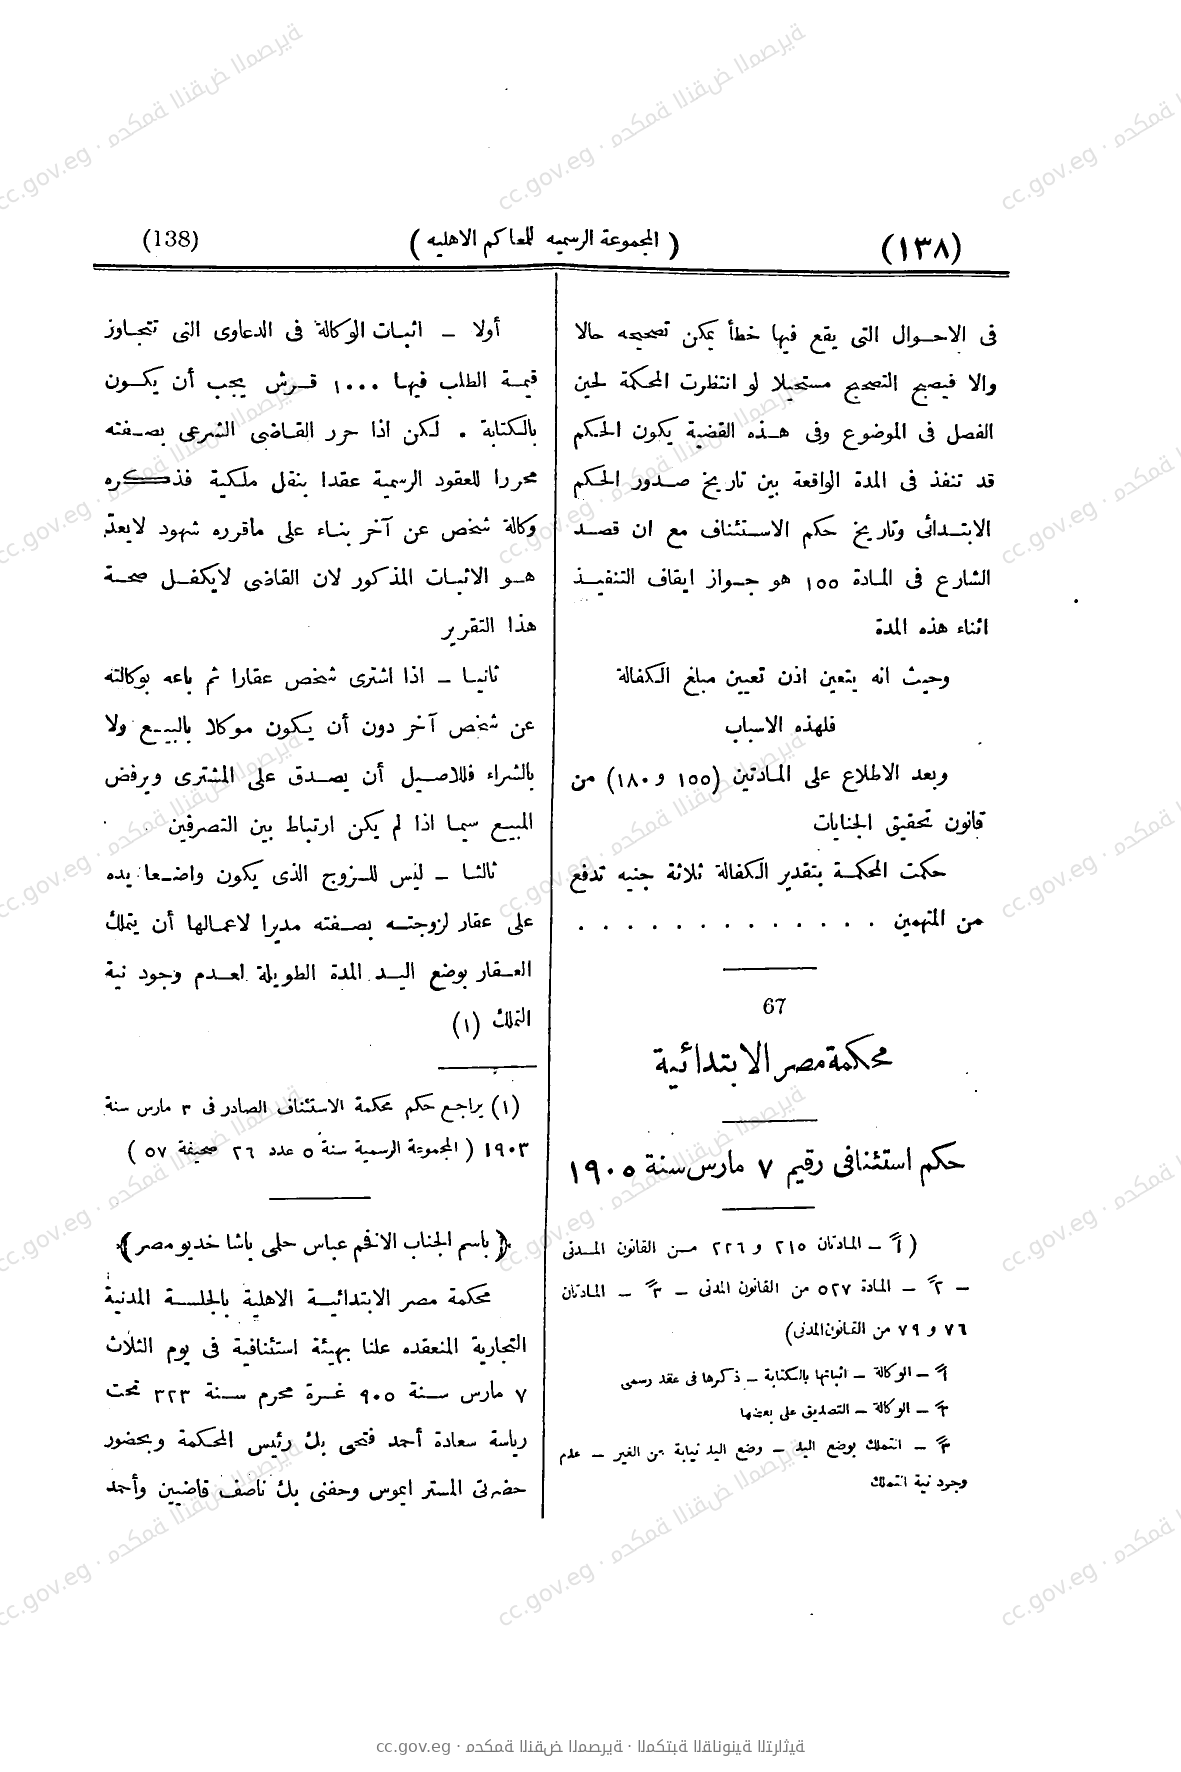 (١٣٨)
( المجموعة الرسميه للمحاكم الاهليه )
(138)
فى الاحوال التى يقع فيها خطأ يمكن تصحيحه حالا
والا فيصبح التصحيح مستحيلا لو انتظرت المحكمة لحين
الفصل فى الموضوع وفى هذه القضية يكون الحكم
قد تنفذ فى المدة الواقعة بين تاريخ صدور الحكم
الابتدائى وتاريخ حكم الاستئناف مع ان قصد
الشارع فى المادة ١٥٥ هو جواز ايقاف التنفيذ
اثناء هذه المدة
وحيث انه يتعين اذن تعيين مبلغ الكفالة
فلهذه الاسباب
وبعد الاطلاع على المادتين (١٥٥ و ١٨٠) من
قانون تحقيق الجنايات
حكمت المحكمة بتقدير الكفالة ثلاثة جنيه تدفع
من المتهمين . . . . . . . . . . . . .
67
محكمة مصر الابتدائية
حكم استئنافى رقيم ٧ مارس سنة ١٩٠٥
( ١ً – المادتان ٢١٥ و ٢٢٦ من القانون المدنى
– ٢ً – المادة ٥٢٧ من القانون المدنى – ٣ً – المادتان
٧٦ و ٧٩ من القانون المدنى)
١ً – الوكالة – اثباتها بالكتابة – ذكرها فى عقد رسمى
٢ً – الوكالة – التصديق على بعضها
٣ً – التملك بوضع اليد – وضع اليد نيابة عن الغير – عدم
وجود نية التملك
أولا – اثبات الوكالة فى الدعاوى التى تتجاوز
قيمة الطلب فيها ١٠٠٠ قرش يجب أن يكون
بالكتابة . لكن اذا حرر القاضى الشرعى بصفته
محررا للعقود الرسمية عقدا بنقل ملكية فذكره
وكالة شخص عن آخر بناء على ماقرره شهود لايعدّ
هو الاثبات المذكور لان القاضى لايكفل صحة
هذا التقرير
ثانيا – اذا اشترى شخص عقارا ثم باعه بوكالته
عن شخص آخر دون أن يكون موكلا بالبيع ولا
بالشراء فللاصيل أن يصدق على المشترى ويرفض
المبيع سيما اذا لم يكن ارتباط بين التصرفين
ثالثا – ليس للزوج الذى يكون واضعا يده
على عقار لزوجته بصفته مديرا لاعمالها أن يتملك
العقار بوضع اليد المدة الطويلة لعدم وجود نية
التملك (١)
(١) يراجع حكم محكمة الاستئناف الصادر فى ٣ مارس سنة
١٩٠٣ ( المجموعة الرسمية سنة ٥ عدد ٢٦ صحيفة ٥٧ )
﴿ باسم الجناب الافخم عباس حلمى باشا خديو مصر ﴾
محكمة مصر الابتدائية الاهلية بالجلسة المدنية
التجارية المنعقده علنا بهيئة استئنافية فى يوم الثلاث
٧ مارس سنة ٩٠٥ غرة محرم سنة ٣٢٣ تحت
رياسة سعادة أحمد فتحى بك رئيس المحكمة وبحضور
حضرتى المستر ايموس وحفنى بك ناصف قاضيين وأحمد
cc.gov.eg · محكمة النقض المصرية · المكتبة القانونية التراثية